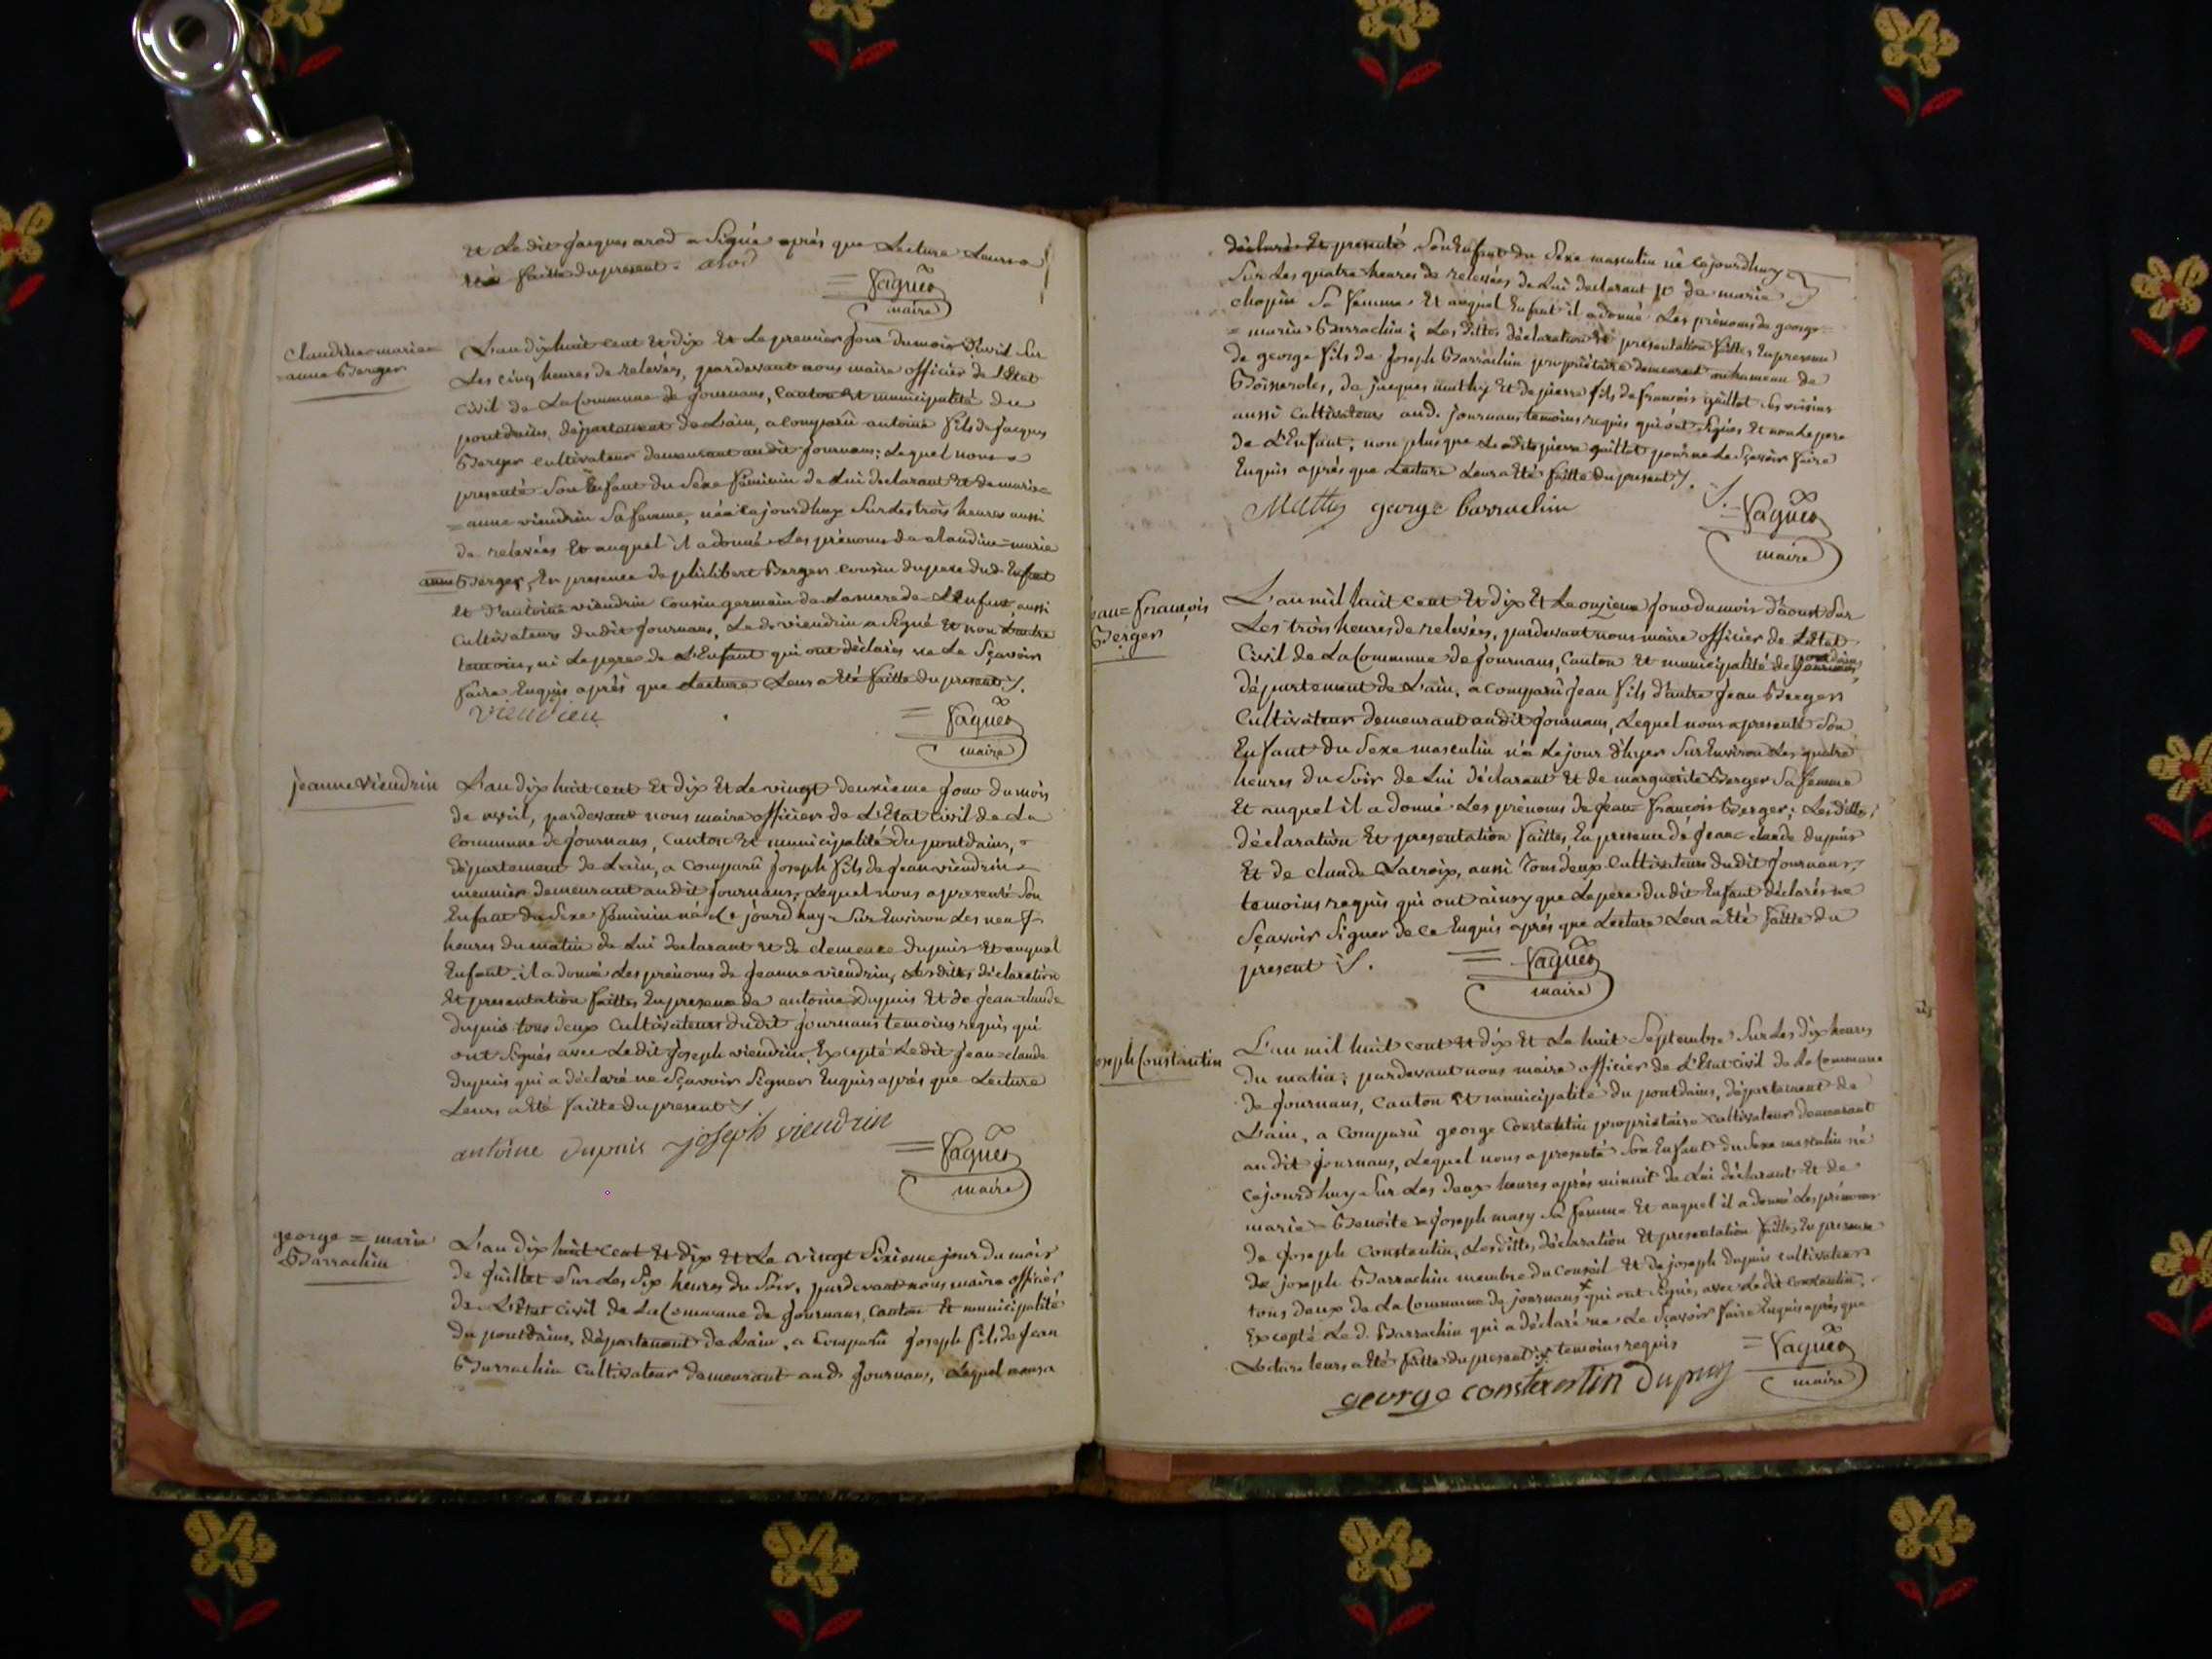 et Ledit jacques arod a Signé aprés que Lecture Leurs a
été faitte du present. arod
= Vagueo
maire
Claudine=marie=
=anne Berger
L'an dix huit cent et dix et Le premier jour du mois d'avril Sur
Les cinq heures de relevées, pardevant nous maire officier de L'Etat
civil de La Commune de journans, Canton et municipalité du
pontdains, département de L'ain, a comparû antoine fils de jacques
Berger cultivateur demeurant audit journans; Lequel nous a
presenté Son Enfant du Sexe féminin de Lui declarant et de marie=
=anne viendrin Sa femme, née cejourdhuy Sur Les trois heures aussi
de relevées et auquel il a donné Les prénoms de claudine=marie
anne Berger, En presence de philibert Berger cousin du pere dud. Enfant
et d'antoine viendrin Cousin germain de La mere de L'Enfant, aussi
Cultivateurs dudit journans, Le d. viendrin a Signé et non Lautre
temoin, ni Le pere de L'Enfant qui ont déclarés ne Le Sçavoir
faire Enquis aprés que Lecture Leurs a Eté faitte du present /.
viendien
= Vagueo
maire
jeanne viendrin
L'an dix huit cent Et dix Et Le vingt deuxieme jour du mois
de avril, pardevant nous maire officier de L'Etat civil de La
Commune de journans, Canton et municipalité du pontdains,
département de Lain, a comparû joseph fils de jean viendrin
meunier demeurant audit journans, Lequel nous a presenté Son
Enfant du Sexe féminin né Le jourdhuy Sur Environ Les neuf
heures du matin de Lui declarant et de clemence dupuis Et auquel
Enfant il a donné Les prénoms de jeanne viendrin, Lesdittes déclaration
Et presentation faittes En presence de antoine Dupuis Et de jean claude
dupuis tous deux Cultivateurs dudit journans temoins requis qui
ont Signés avec Ledit joseph viendrin, Excepté Ledit jean=claude
dupuis qui a déclaré ne Sçavoir Signer Enquis aprés que Lecture
Leurs a Eté faitte du present /
antoine dupuis joseph viendrin
= Vagueo
maire
george = marie
Barrachin
L'an dix huit cent Et dix Et Le vingt Sixieme jour du mois
de juillet Sur Les Six heures du Soir, pardevant nous maire officier
de L'Etat civil de La Commune de journans, Canton Et municipalité
du pontdains, département de Lain, a Comparû joseph fils de jean
Barrachin Cultivateur demeurant aud. journans, Lequel nous a
déclaré Et presenté Son Enfant du Sexe masculin né cejourdhuy
Sur Les quatre heures de relevées de Lui declarant Et de marie
chopin Sa femme Et auquel Enfant il a donné Les prénoms de george=
= marie Barrachin; Les dittes déclaration Et presentation faittes En presence
de george fils de joseph Barrachin propriétaire demeurant au hameau de
de jacques mathy Et de pierre fils de francois guillot Ses voisins
aussi Cultivateurs aud. journans temoins requis qui ont Signés Et non Le pere
de L'Enfant, non plus que Ledit pierre guillot pour ne Le Sçavoir faire
Enquis aprés que Lecture Leurs a Eté faitte du present /.
Matthy george barrachin
= Vagueo
maire
ean=François
Berger
L'an mil huit cent Et dix Et Le onzieme jour du mois d'aoust Sur
Les trois heures de relevées, pardevant nous maire officier de L'Etat
Civil de La Commune de journans, Canton Et municipalité de pontdains
département de L'ain, a comparû jean fils d'autre jean Berger
Cultivateur demeurant audit journans, Lequel nous a presenté Son
Enfant du Sexe masculin né Le jour d'hyer Sur Environ Les quatre
heures du Soir de Lui déclarant Et de marguerite Berger Sa femme
Et auquel il a donné Les prénoms de jean=francois Berger; Lesdittes
déclaration Et presentation faittes, En presence de jean claude dupuis
Et de claude Lacroix, aussi Tous deux Cultivateurs dudit journans,
temoins requis qui ont ainsy que Le pere dudit Enfant déclarés ne
Sçavoir Signer de ce Enquis aprés que Lecture Leur a Eté faitte du
present /.
= Vagueo
maire
oseph Constantin
L'an mil huit cent Et dix Et Le huit Septembre Sur Les dix heures
du matin; pardevant nous maire officier de L'Etat civil de La Commune
de journans, Canton Et municipalité du pontdains, département de
L'ain, a Comparû george Constantin propriétaire cultivateur demeurant
audit journans, Lequel nous a presenté Son Enfant du Sexe masculin né
cejourdhuy Sur Les deux heures aprés minuit de Lui déclarant Et de
marie=Benoite=joseph mary Sa femme Et auquel il a donné Les prénoms
de joseph Constantin, Lesdittes, déclaration Et presentation faittes, En presence
de joseph Barrachin membre du Conseil Et de joseph dupuis cultivateur
tous deux de La Commune de journans x qui ont Signés, avec Ledit constantin,
Excepté Le d. Barrachin qui a déclaré ne Le Sçavoir faire Enquis aprés que
Lecture leurs a Eté faitte du present /. x temoins requis
george constantin Dupuy
= Vagueo
maire